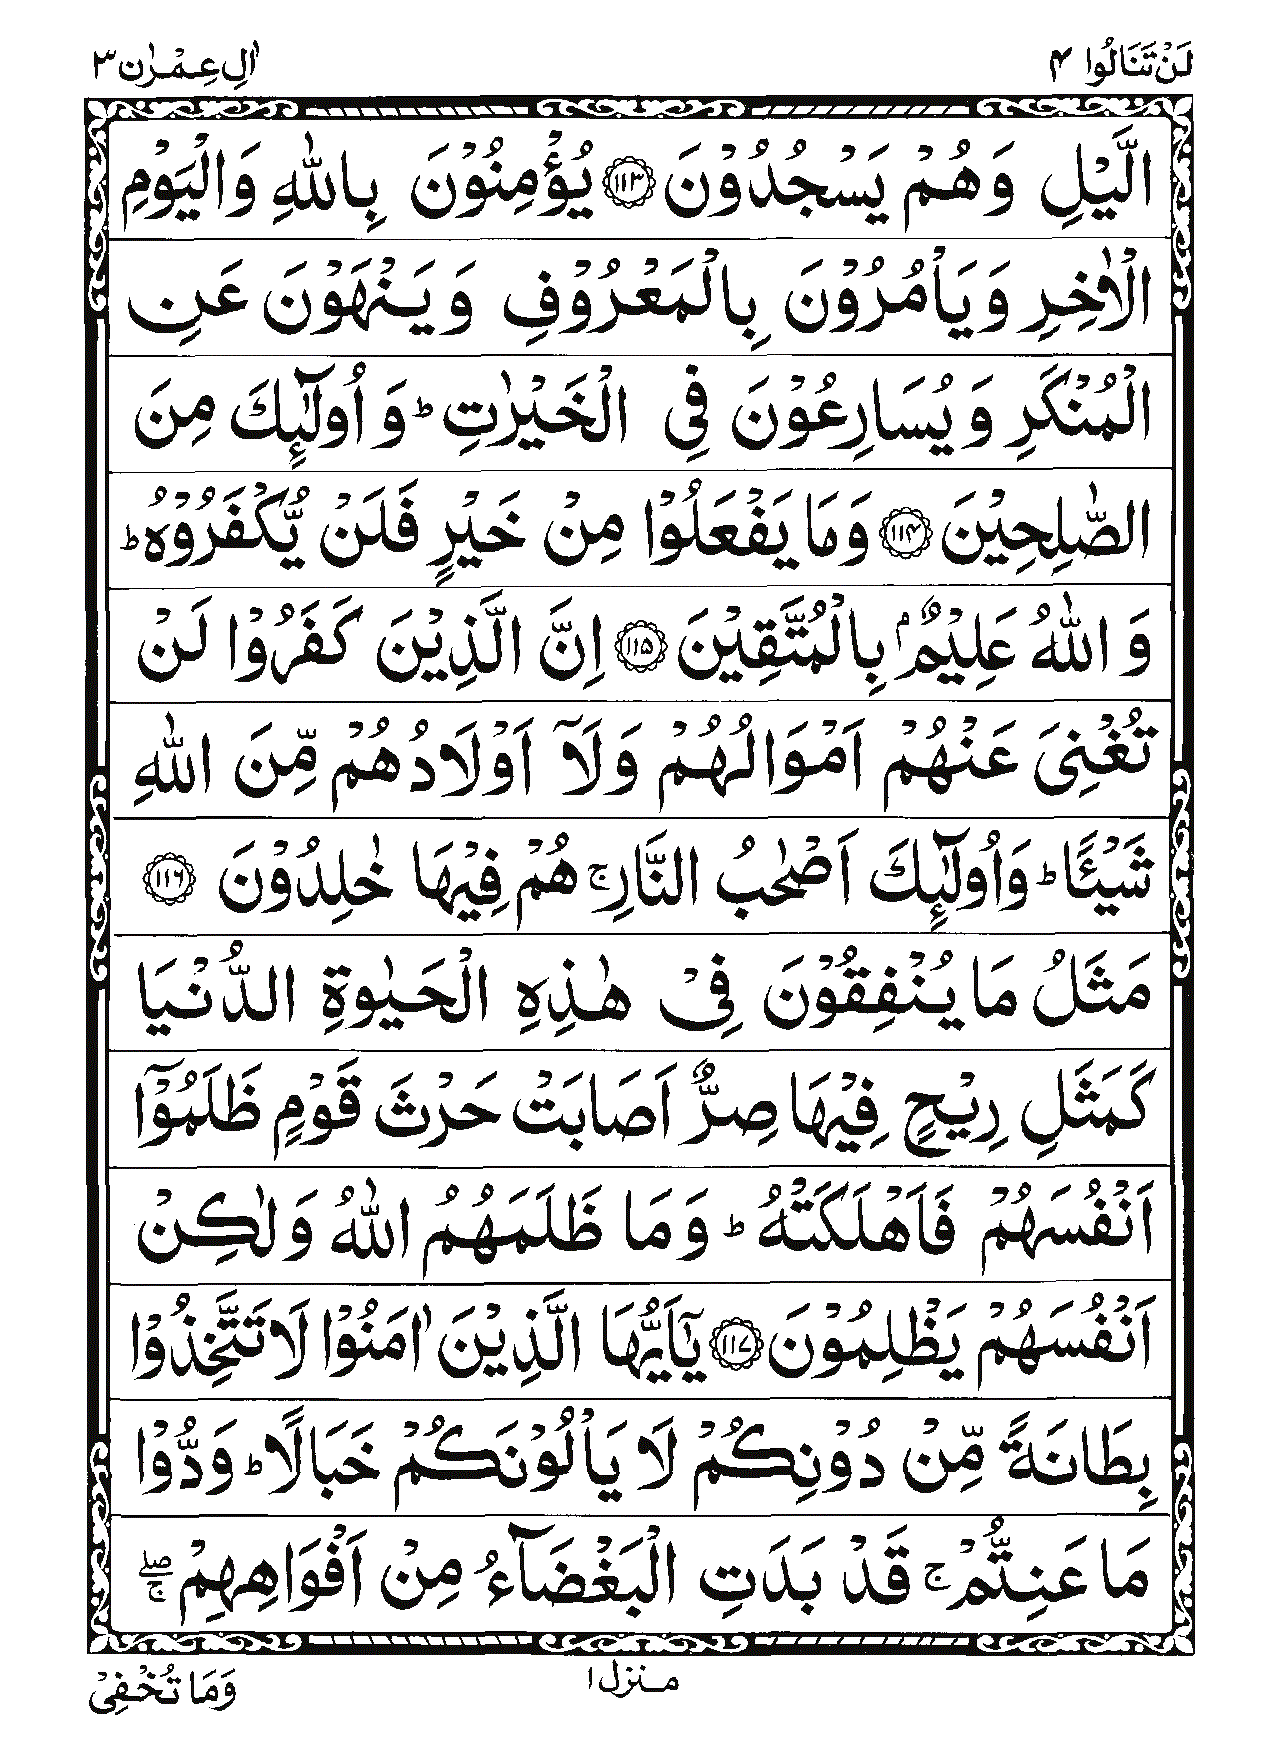 لَنْ تَنَالُوا ۴ اٰلِ عِمْرٰن ۳
الَّيْلِ وَهُمْ يَسْجُدُوْنَ ۝۱۱۳ يُؤْمِنُوْنَ بِاللّٰهِ وَالْيَوْمِ
الْاٰخِرِ وَيَاْمُرُوْنَ بِالْمَعْرُوْفِ وَيَنْهَوْنَ عَنِ
الْمُنْكَرِ وَيُسَارِعُوْنَ فِى الْخَيْرٰتِ ؕ وَاُولٰٓئِكَ مِنَ
الصّٰلِحِيْنَ ۝۱۱۴ وَمَا يَفْعَلُوْا مِنْ خَيْرٍ فَلَنْ يُّكْفَرُوْهُ ؕ
وَاللّٰهُ عَلِيْمٌۢ بِالْمُتَّقِيْنَ ۝۱۱۵ اِنَّ الَّذِيْنَ كَفَرُوْا لَنْ
تُغْنِىَ عَنْهُمْ اَمْوَالُهُمْ وَلَاۤ اَوْلَادُهُمْ مِّنَ اللّٰهِ
شَيْـًٔا ؕ وَاُولٰٓئِكَ اَصْحٰبُ النَّارِ ۚ هُمْ فِيْهَا خٰلِدُوْنَ ۝۱۱۶
مَثَلُ مَا يُنْفِقُوْنَ فِىْ هٰذِهِ الْحَيٰوةِ الدُّنْيَا
كَمَثَلِ رِيْحٍ فِيْهَا صِرٌّ اَصَابَتْ حَرْثَ قَوْمٍ ظَلَمُوْۤا
اَنْفُسَهُمْ فَاَهْلَكَتْهُ ؕ وَمَا ظَلَمَهُمُ اللّٰهُ وَلٰكِنْ
اَنْفُسَهُمْ يَظْلِمُوْنَ ۝۱۱۷ يٰۤاَيُّهَا الَّذِيْنَ اٰمَنُوْا لَا تَتَّخِذُوْا
بِطَانَةً مِّنْ دُوْنِكُمْ لَا يَاْلُوْنَكُمْ خَبَالًا ؕ وَدُّوْا
مَا عَنِتُّمْ ۚ قَدْ بَدَتِ الْبَغْضَآءُ مِنْ اَفْوَاهِهِمْ ۖۚ
منزل ۱
وَمَا تُخْفِىْ